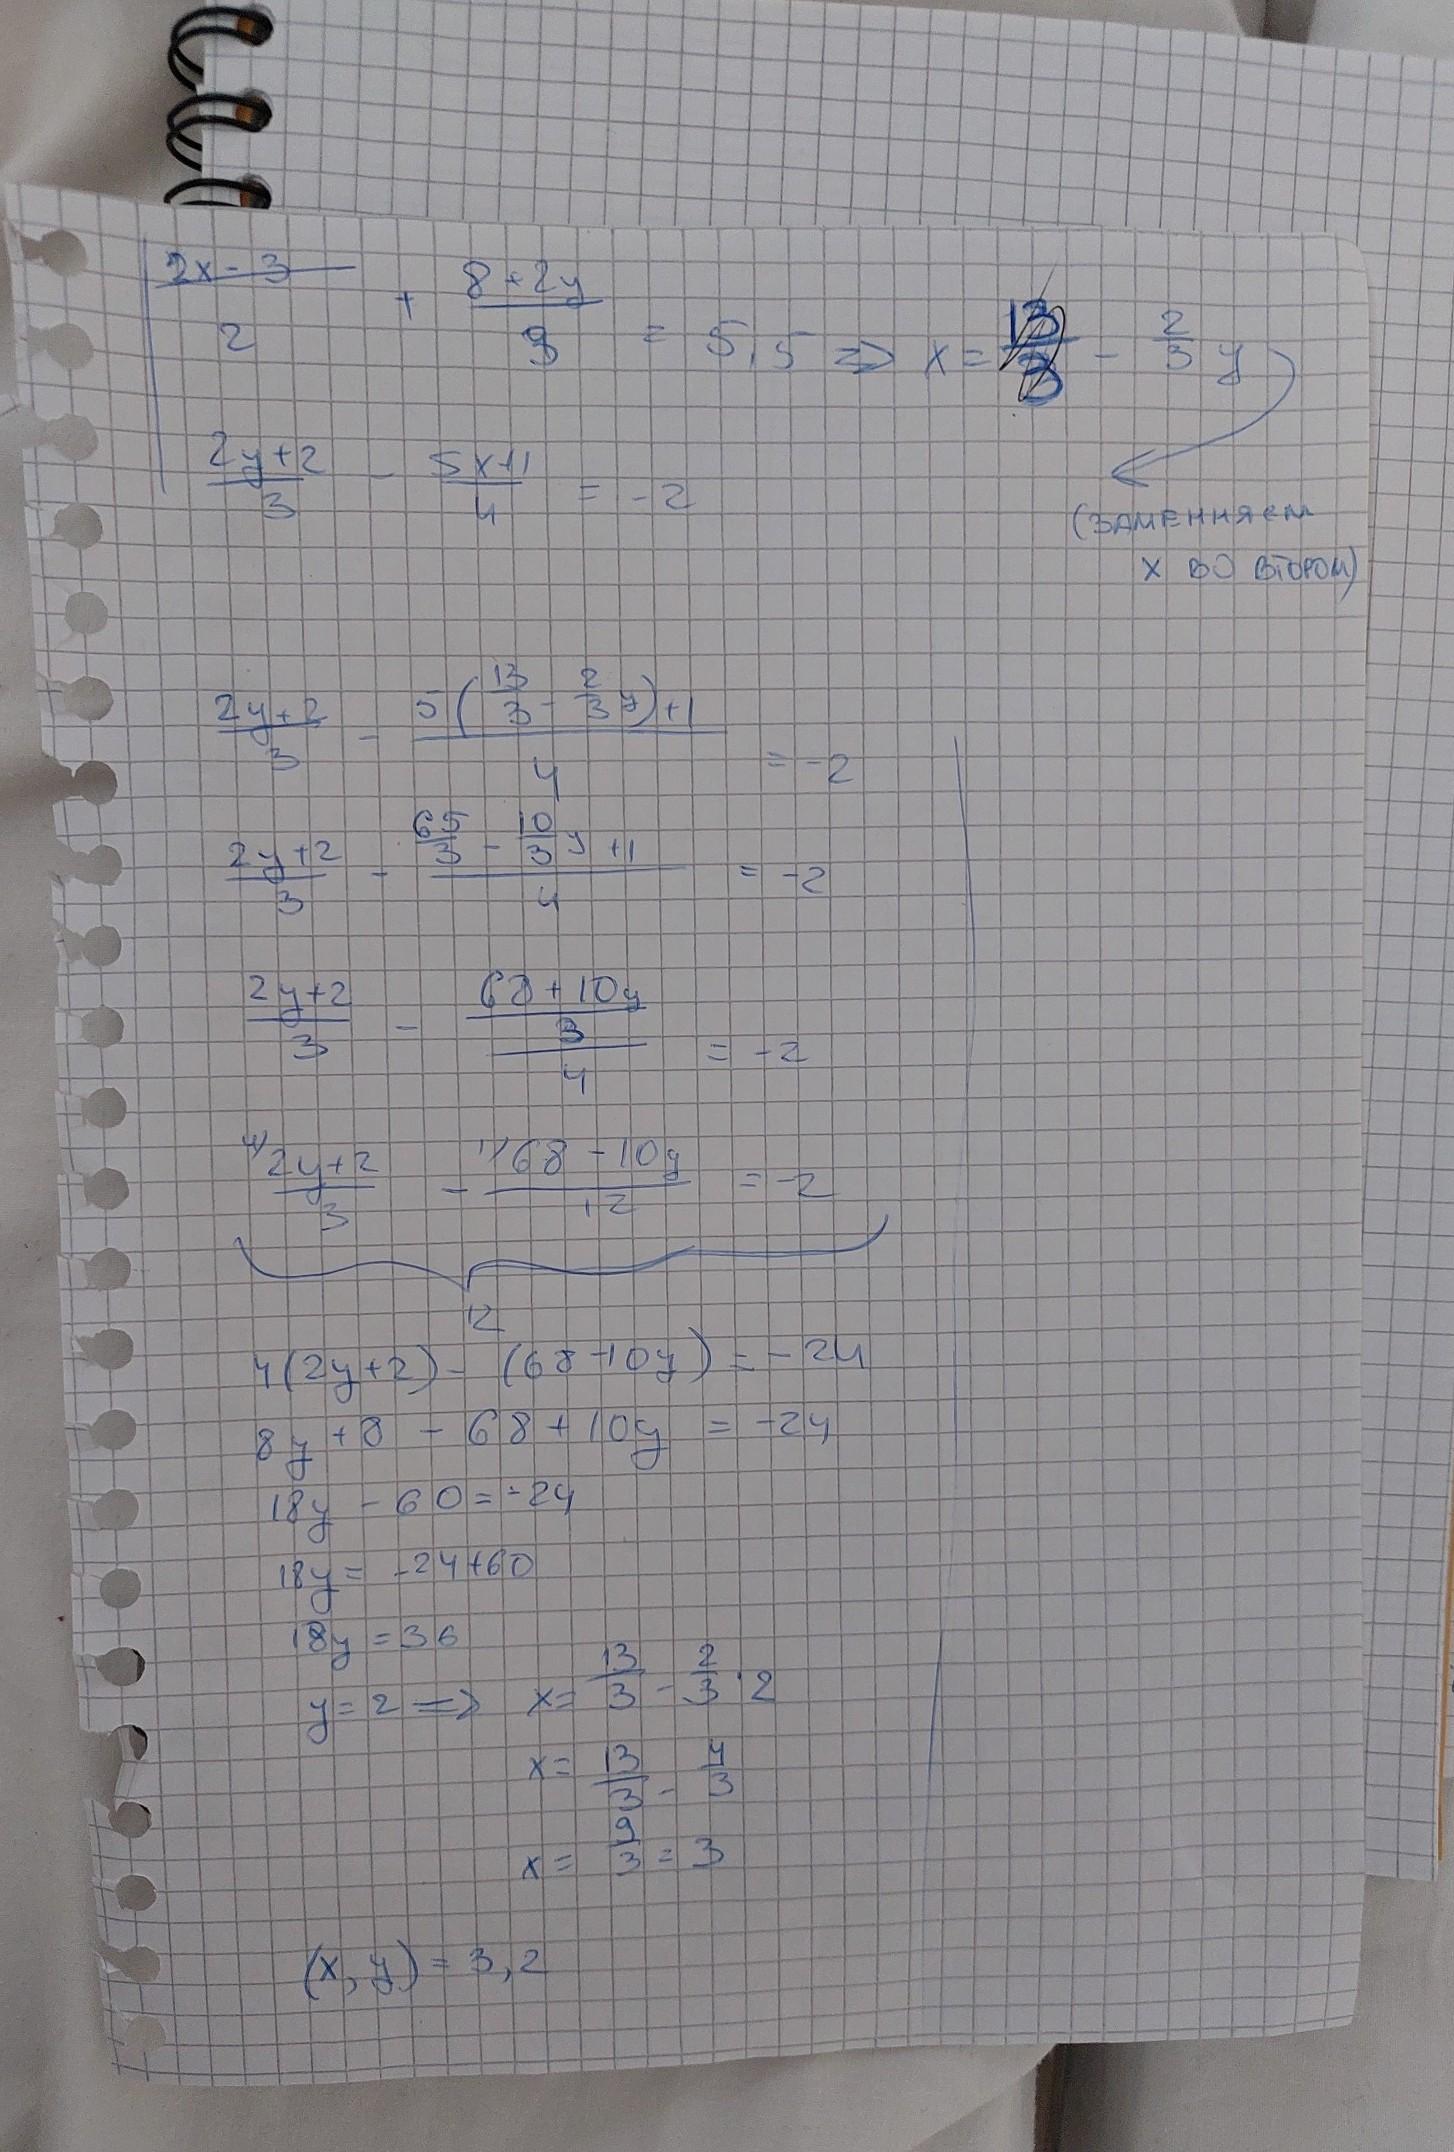 (2x-3)/2 + (8+2y)/3 = 5,5 => x = 13/3 - 2/3 y
(2y+2)/3 - (5x+1)/4 = -2
(ЗАМЕННЯЕМ
X ВО ВТОРОМ)
(2y+2)/3 - (5(13/3 - 2/3 y)+1)/4 = -2
(2y+2)/3 - (65/3 - 10/3 y +1)/4 = -2
(2y+2)/3 - ((68+10y)/3)/4 = -2
4) (2y+2)/3 - 1) (68-10y)/12 = -2
12
4(2y+2) - (68-10y) = -24
8y+8 - 68+10y = -24
18y - 60 = -24
18y = -24+60
18y = 36
y = 2 => x = 13/3 - 2/3 · 2
x = 13/3 - 4/3
x = 9/3 = 3
(x, y) = 3, 2